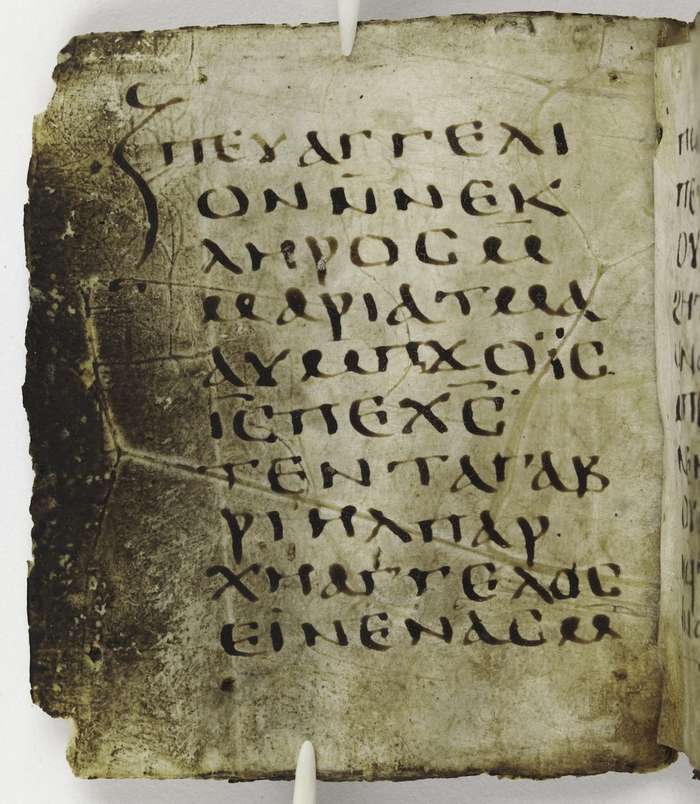 ⲡⲉⲩⲁⲅⲅⲉⲗⲓ
ⲟⲛⲛ̄ⲛⲉⲕ
ⲗⲏⲣⲟⲥⲙ̄
ⲙⲁⲣⲓⲁⲧⲙⲁ
ⲁⲩⲙⲡϫⲟⲉⲓⲥ
ⲓ̅ⲥ̅ⲡⲉⲭ̅ⲥ̅
ⲧⲉⲛⲧⲁⲅⲁⲃ
ⲣⲓⲏⲗⲡⲁⲣ
ⲭⲏⲁⲅⲅⲉⲗⲟⲥ
ⲉⲓⲛⲉⲛⲁⲥⲙ̄